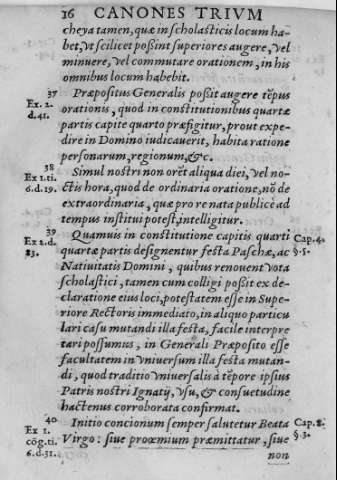 16 CANONES TRIVM
cheya tamen, quæ in scholasticis locum ha-
bet, vt scilicet possint superiores augere, vel
minuere, vel commutare orationem, in his
omnibus locum habebit.
37
Ex. 2.
d.41.
Præpositus Generalis possit augere tẽpus
orationis, quod in constitutionibus quartæ
partis capite quarto præfigitur, prout expe-
dire in Domino iudicauerit, habita ratione
personarum, regionum, &c.
38
Ex 1.ti.
6.d.19.
Simul nostri non orẽt aliqua diei, vel no-
ctis hora, quod de ordinaria oratione, nõ de
extraordinaria, quæ pro re nata publicè ad
tempus institui potest, intelligitur.
39
Ex 2.d.
83.
Quamuis in constitutione capitis quarti
quartæ partis designentur festa Paschæ, ac
Natiuitatis Domini, quibus renouent vota
scholastici, tamen cum colligi possit ex de-
claratione eius loci, potestatem esse in Supe-
riore Rectoris immediato, in aliquo particu
lari casu mutandi illa festa, facile interpre
tari possumus, in Generali Præposito esse
facultatem in vniuersum illa festa mutan-
di, quod traditio vniuersalis à tẽpore ipsius
Patris nostri Ignatij, vsu, & consuetudine
hactenus corroborata confirmat.
Cap.4.
§.5.
40
Ex 1.
cõg.ti.
6.d.31.
Initio concionum semper salutetur Beata
Virgo: siue proœmium præmittatur, siue
Cap.8.
§.3.
non